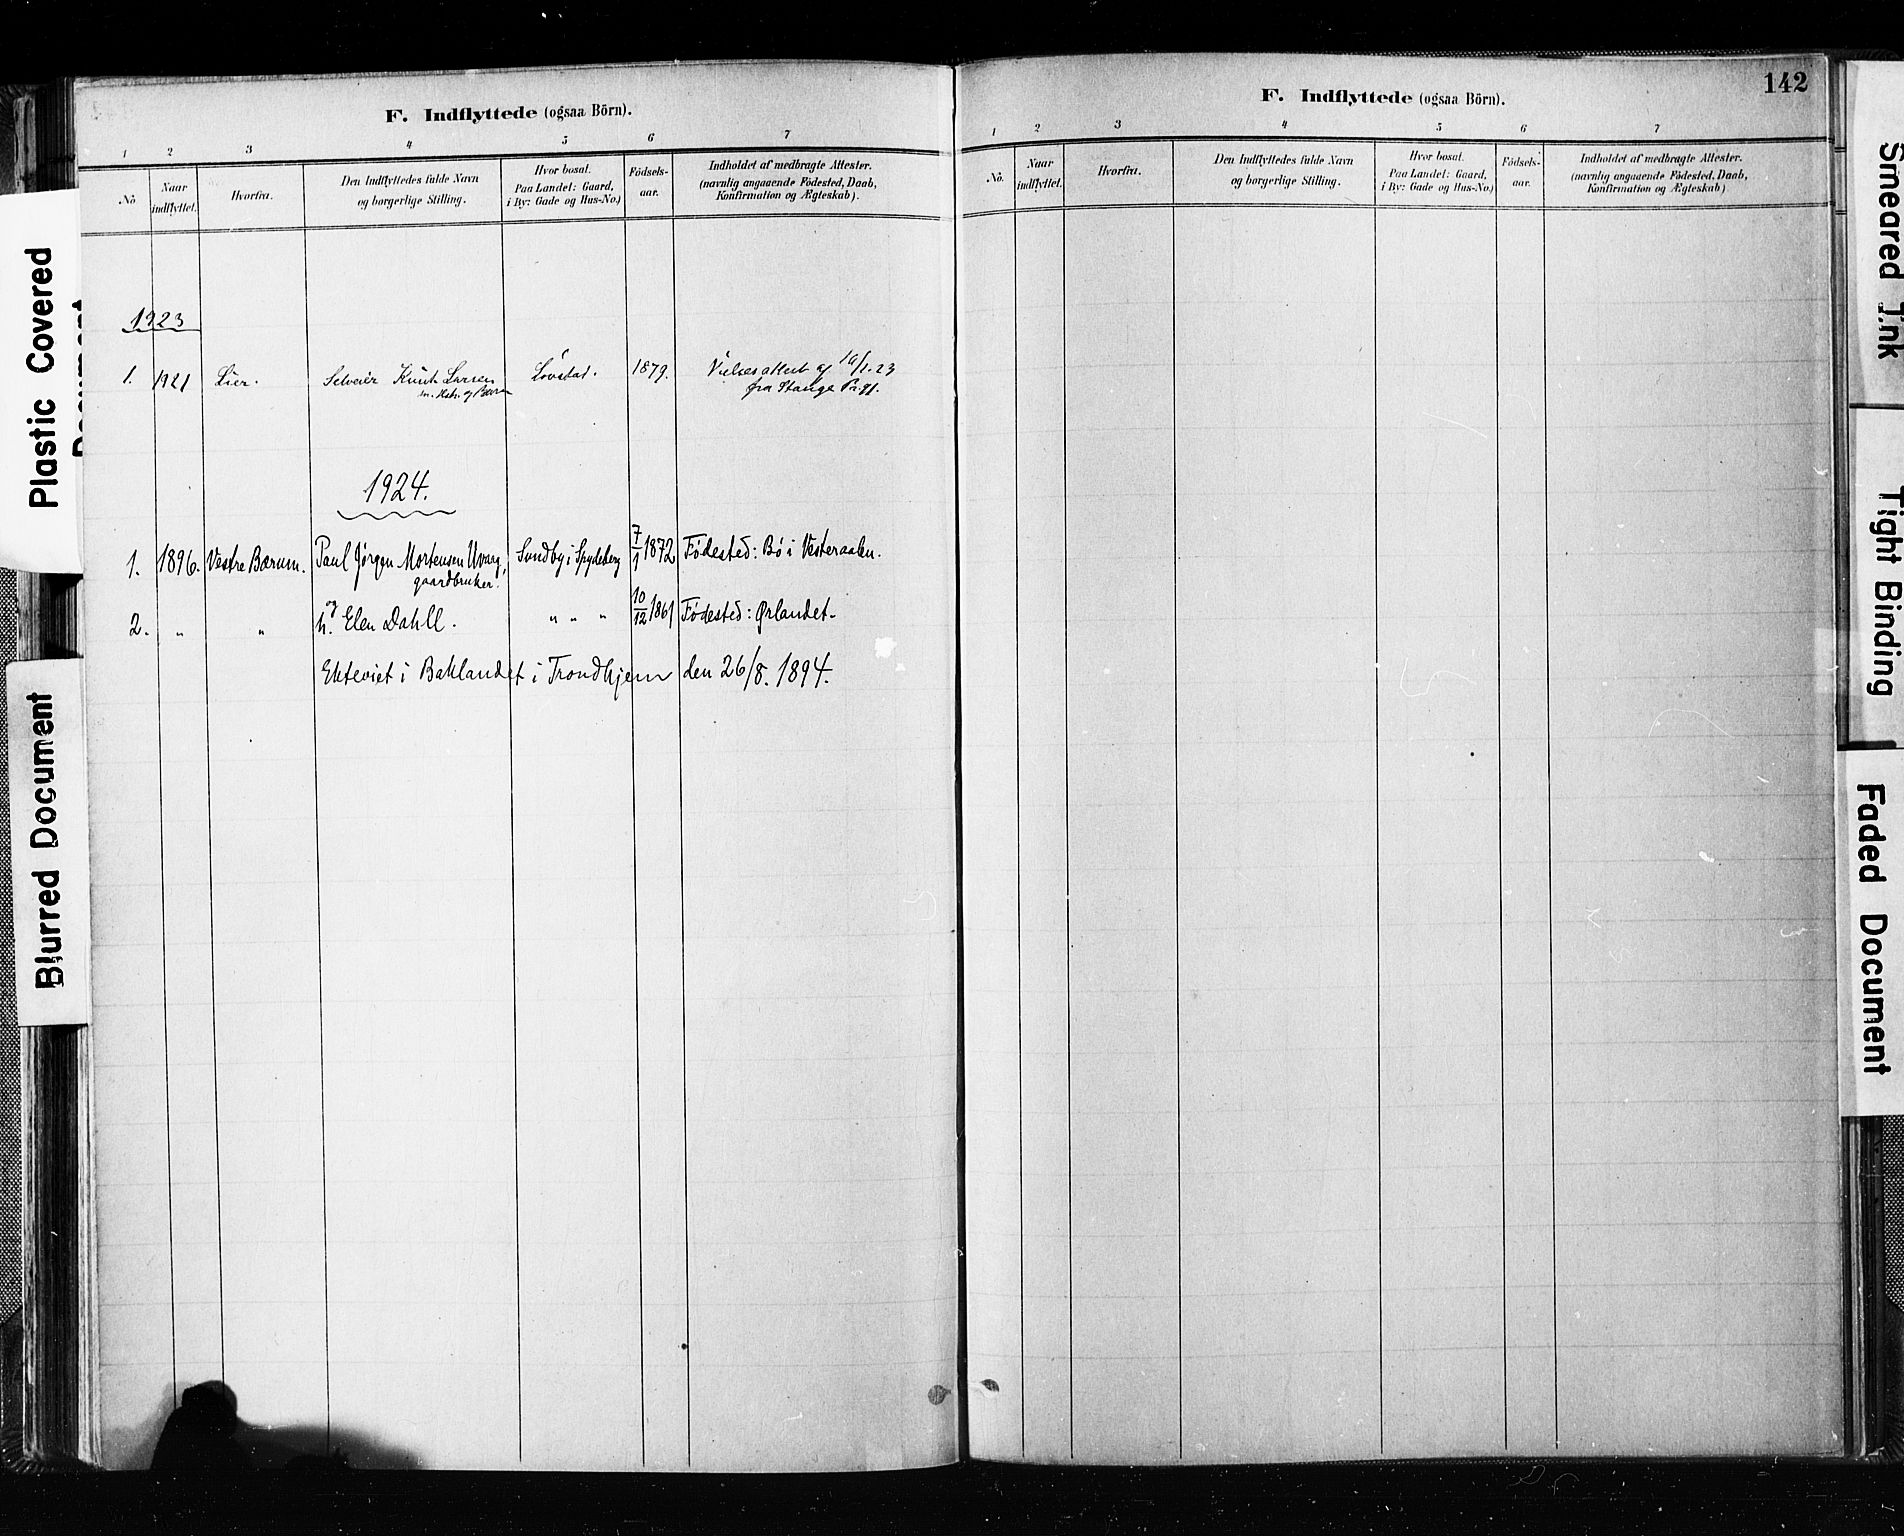 F. Indflyttede (ogsaa Börn).
1 2 3 4 5 6 7
No. Naar indflyttet. Hvorfra. Den Indflyttedes fulde Navn og borgerlige Stilling. Hvor bosat. Paa Landet: Gaard, i By: Gade og Hus-No.) Födsels-aar. Indholdet af medbragte Attester. (navnlig angaaende Födested, Daab, Konfirmation og Ægteskab).
1923
1. 1921 Lier. Selveier Knut Larsen Lovstad. 1879. Vielsesattest af 10/1.23
m. Hstr. og Barn fra Stange Pr.gj.
1924.
1. 1896. Vestre Bærum. Paul Jørgen Mortensen Sundby i Spydeberg 7/1 1872 Fødested: Bø i Vesteraalen.
gaardbruker.
2. " " og h. Elen Dahll. " " " 10/12 1861 Fødested: Ørlandet.
Ekteviet i Baklandet i Trondhjem den 26/8. 1894.
142
F. Indflyttede (ogsaa Börn).
1 2 3 4 5 6 7
No. Naar indflyttet. Hvorfra. Den Indflyttedes fulde Navn og borgerlige Stilling. Hvor bosat. Paa Landet: Gaard, i By: Gade og Hus-No.) Födsels-aar. Indholdet af medbragte Attester. (navnlig angaaende Födested, Daab, Konfirmation og Ægteskab)
Plastic Covered
Document
Blurred Document
Smeared Ink
Tight Binding
Faded Document